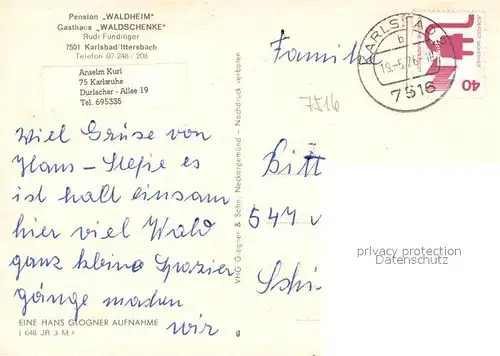 Pension „WALDHEIM"
Gasthaus „WALDSCHENKE"
Rudi Fundinger
7501 Karlsbad/Ittersbach
Telefon 07 248 - 208
Anselm Kuri
75 Karlsruhe
Durlacher - Allee 19
Tel. 695335
Viel Grüse von
Hans - Stefie es
ist halt einsam
hier viel Wald
ganz kleine Spazier
gänge machen
wir
EINE HANS GLOGNER AUFNAHME
1 648 JR 3 M +
g
VHG Glogner & Sohn, Neckargemünd - Nachdruck verboten
Familie
7516
Bitt
544
Schi
KARLSBAD
b
19.-5.76-18
7516
40
privacy protection
DARKONE@AKPOOL.DE